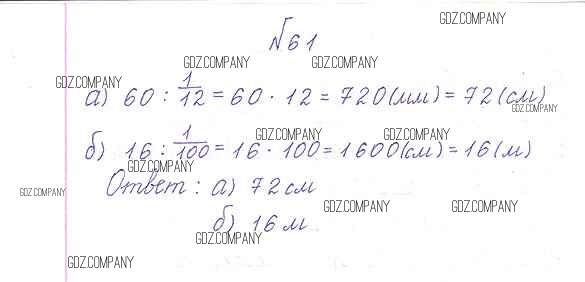 №61
GDZ.COMPANY
GDZ.COMPANY GDZ.COMPANY
GDZ.COMPANY
а) 60 : 1/12 = 60 · 12 = 720 (мм) = 72 (см)
GDZ.COMPANY
GDZ.COMPANY GDZ.COMPANY
б) 16 : 1/100 = 16 · 100 = 1600 (см) = 16 (м)
GDZ.COMPANY
Ответ: а) 72 см
GDZ.COMPANY
GDZ.COMPANY GDZ.COMPANY
б) 16 м
GDZ.COMPANY
GDZ.COMPANY